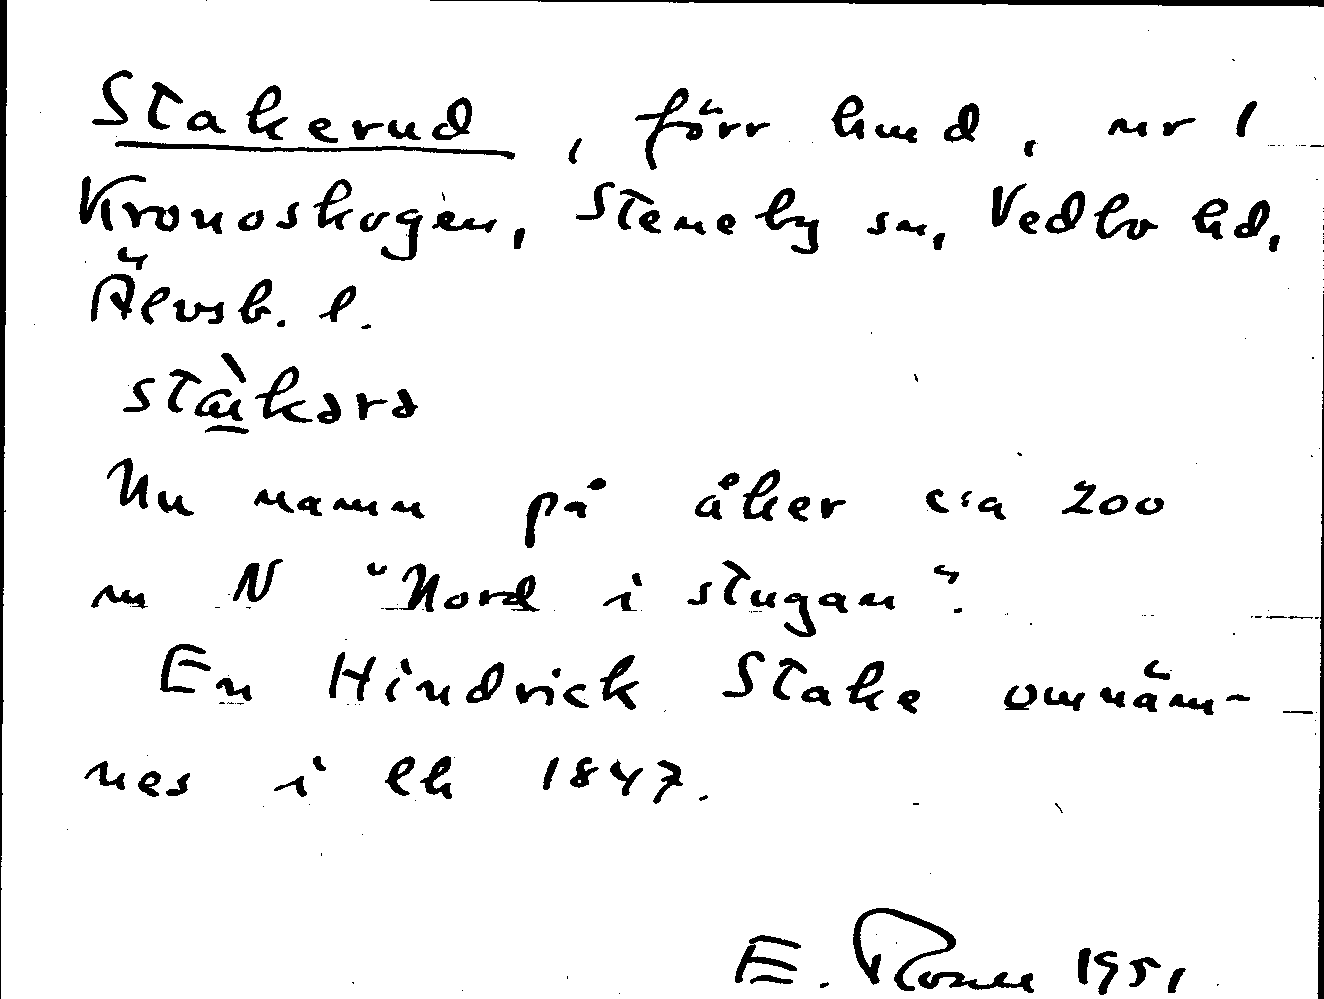 Stakerud, förr hmd, nr 1
Kronoskogen, Steneby sn, Vedbo hd,
Älvsb. l.
stàkərə
Nu namn på åker c:a 200
m N "Nord i stugan".
En Hindrick Stake omnäm-
nes i lh 1847.
E. Rosén 1951